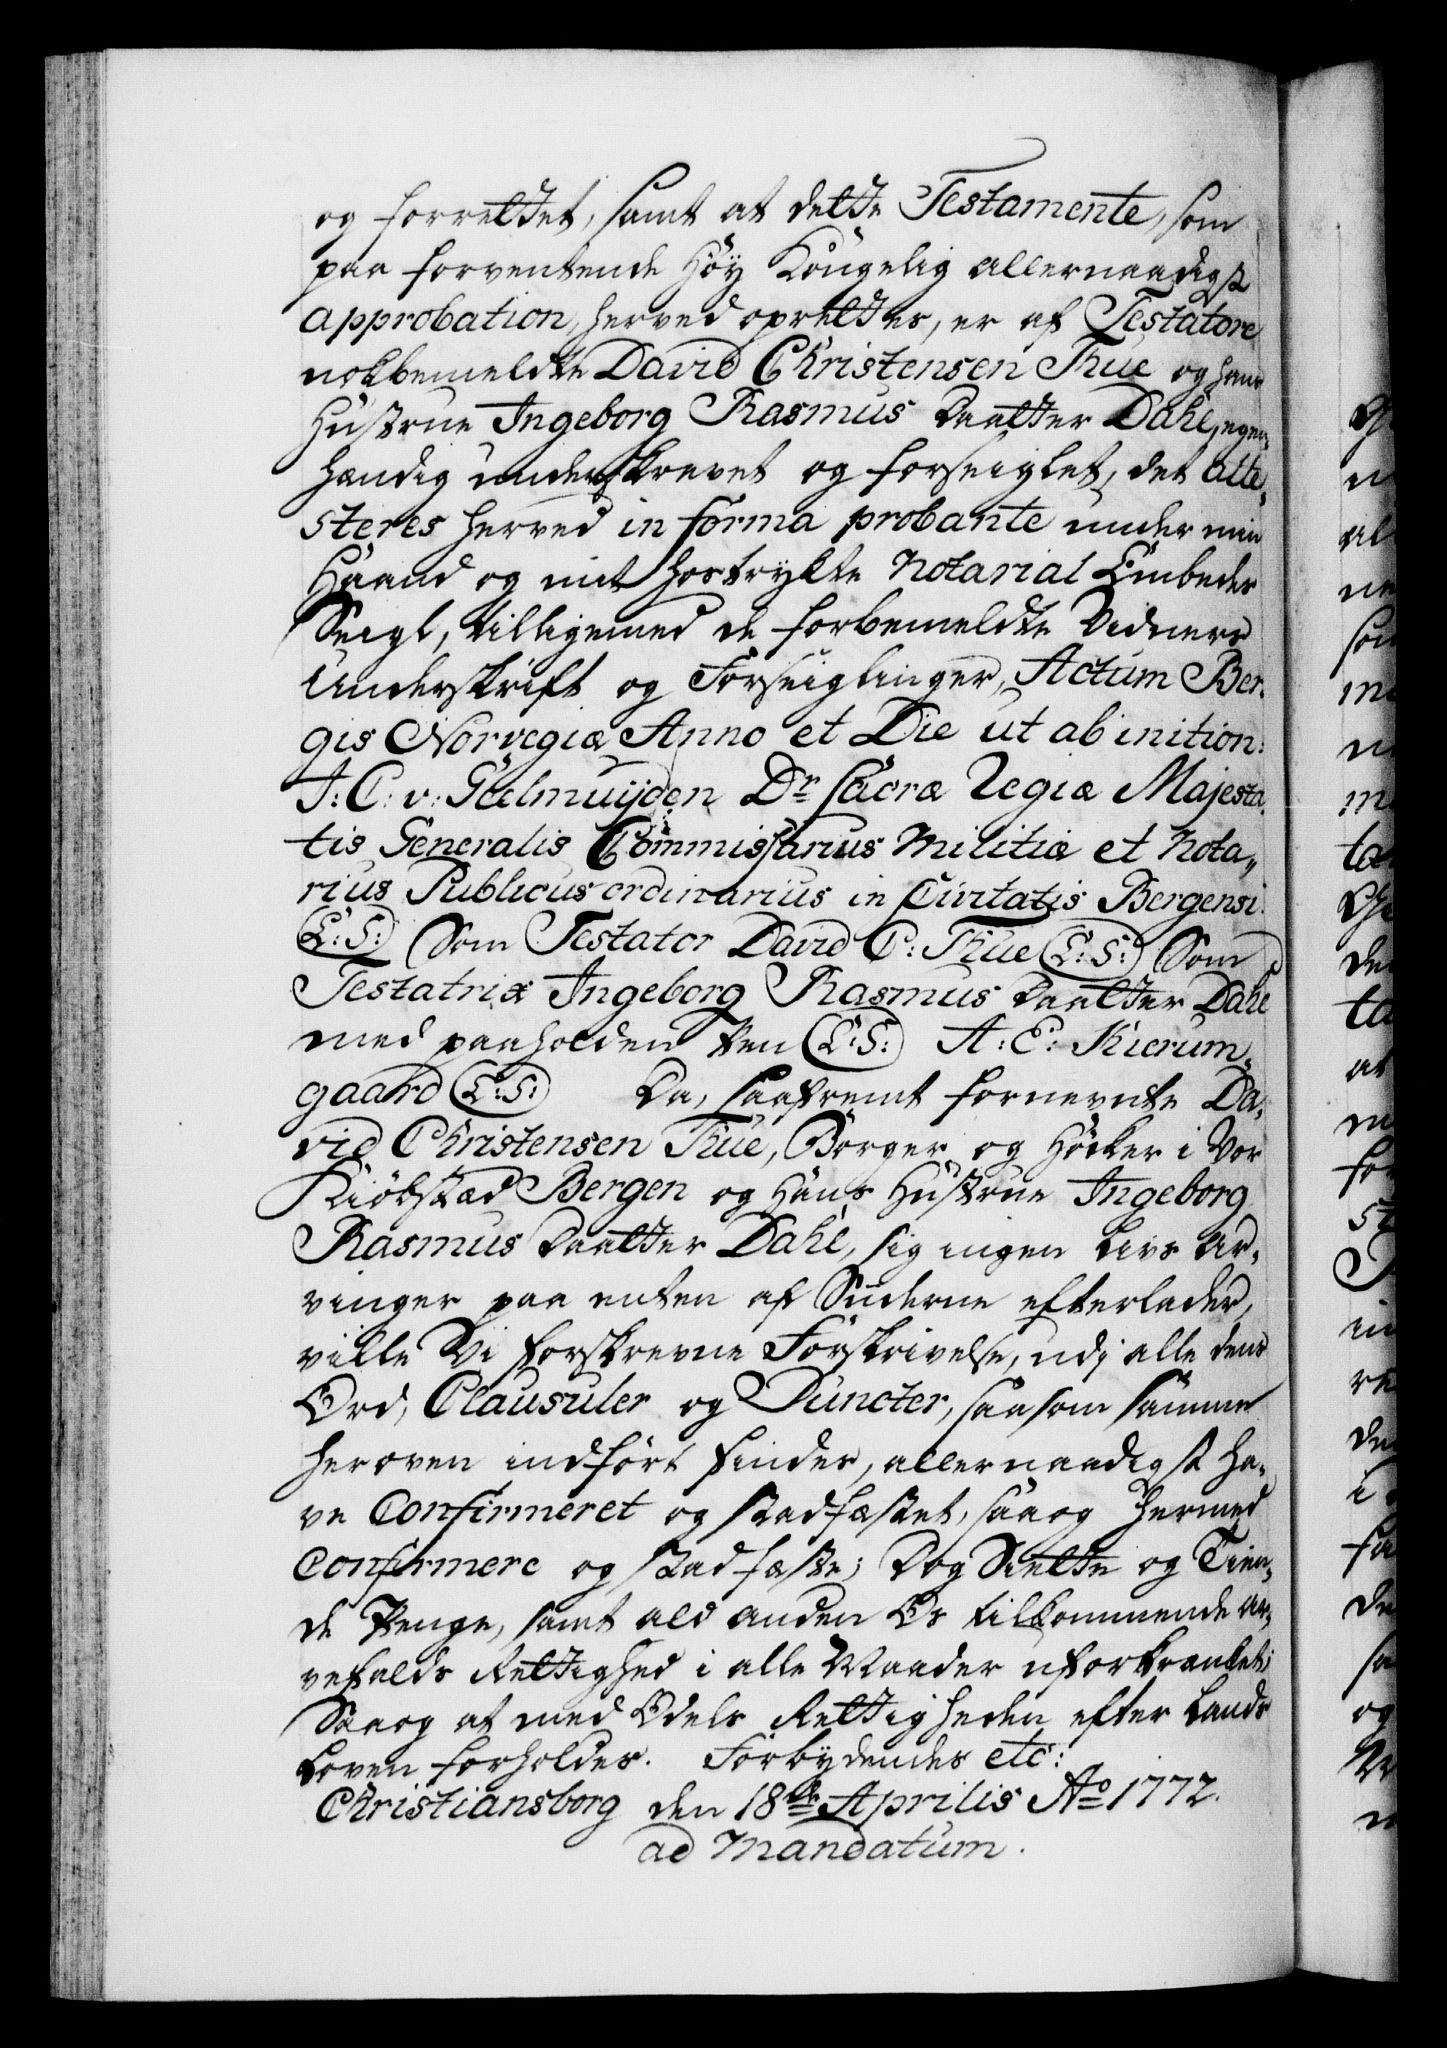 og forrettet, samt at dette Testamente, som
paa forventende Höy Kongelig allernaadigst
approbation, herved oprettes, er af Testatore
nokbemeldte David Christensen Thue og hans
Hustrue Ingeborg Rasmus Daatter Dahl, egen,,
hændig underskrevet og forseiglet, det atte,,
steres herved in forma probante under min
Haand og mit hostrykte Notarial Embedes
Seigl, tilligemed de forbemeldte Vidners
Underskrift og Forseiglinger, Actum Ber,,
gis Norvegiæ Anno et Die ut ab inition:
J: C: v: Gelmuijden Dr Sacræ Regiæ Majesta,,
tis Generalis Commissarius Militiæ et Nota,,
rius Publicus ordinarius in Civitatis Bergensi.
(L: S:) Som Testator David C: Thue (L: S:) Som
Testatrix Ingeborg Rasmus Daatter Dahl
med paaholden Pen (L: S:) A: C: Kierum,,
gaard (L: S:) Da, saafremt fornevnte Da,,
vid Christensen Thue, Borger og Höcker i Vor
Kiöbstad Bergen og Hans Hustrue Ingeborg
Rasmus Daatter Dahl, sig ingen Livs Ar,,
vinger paa enten af Siderne efterlader,
ville Vi forskrevne Forskrivelse, udj alle dens
Ord, Clausuler og Puncter, saasom samme
heroven indfört findes, allernaadigst ha,,
ve Confirmeret og stadfæstet, saa og hermed
Confirmere og stadfæste; Dog Siette og Tien,,
de Penge, samt ald anden Os tilkommende Ar,,
vefalds Rettighed i alle Maader uforkrænket;
Saa og at med Odels Rettigheden efter Lands
Loven forholdes. Forbydendes etc:
Christiansborg den 18de Aprilis Ao 1772.
ad Mandatum.